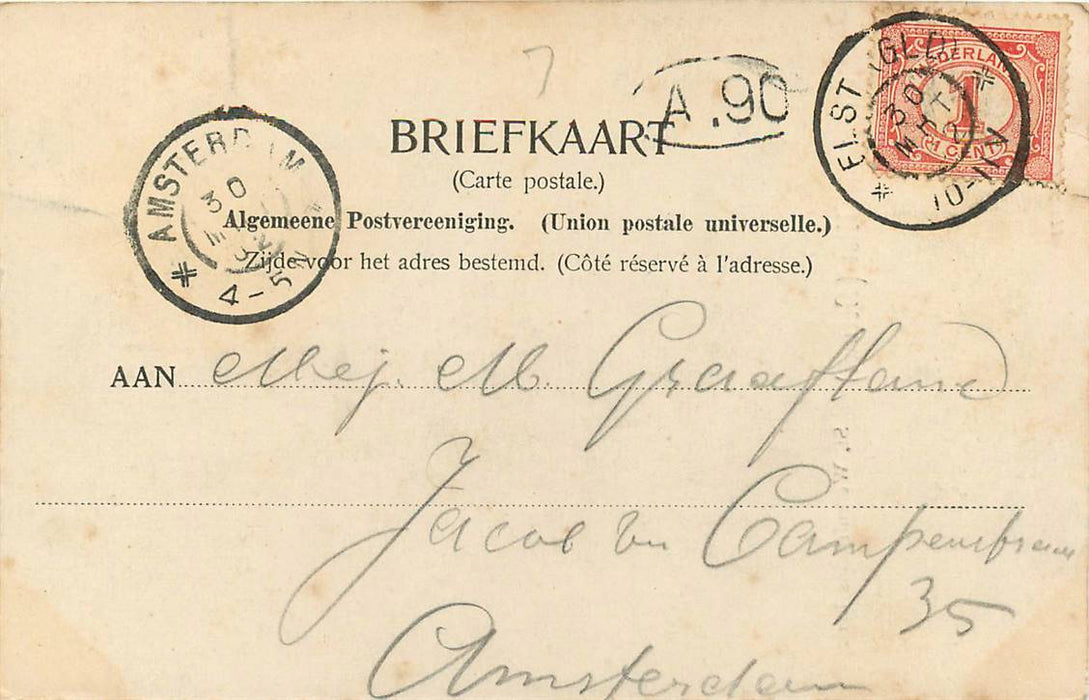 7
A.90
NEDERLAND
1
CENT
ELST (GLD)
30
MRT
10-11V
BRIEFKAART
(Carte postale.)
AMSTERDAM
30
4-5N
Algemeene Postvereeniging. (Union postale universelle.)
Zijde voor het adres bestemd. (Côté réservé à l'adresse.)
AAN Mej. M. Graafland
Jacob v Campenstraat
35
Amsterdam